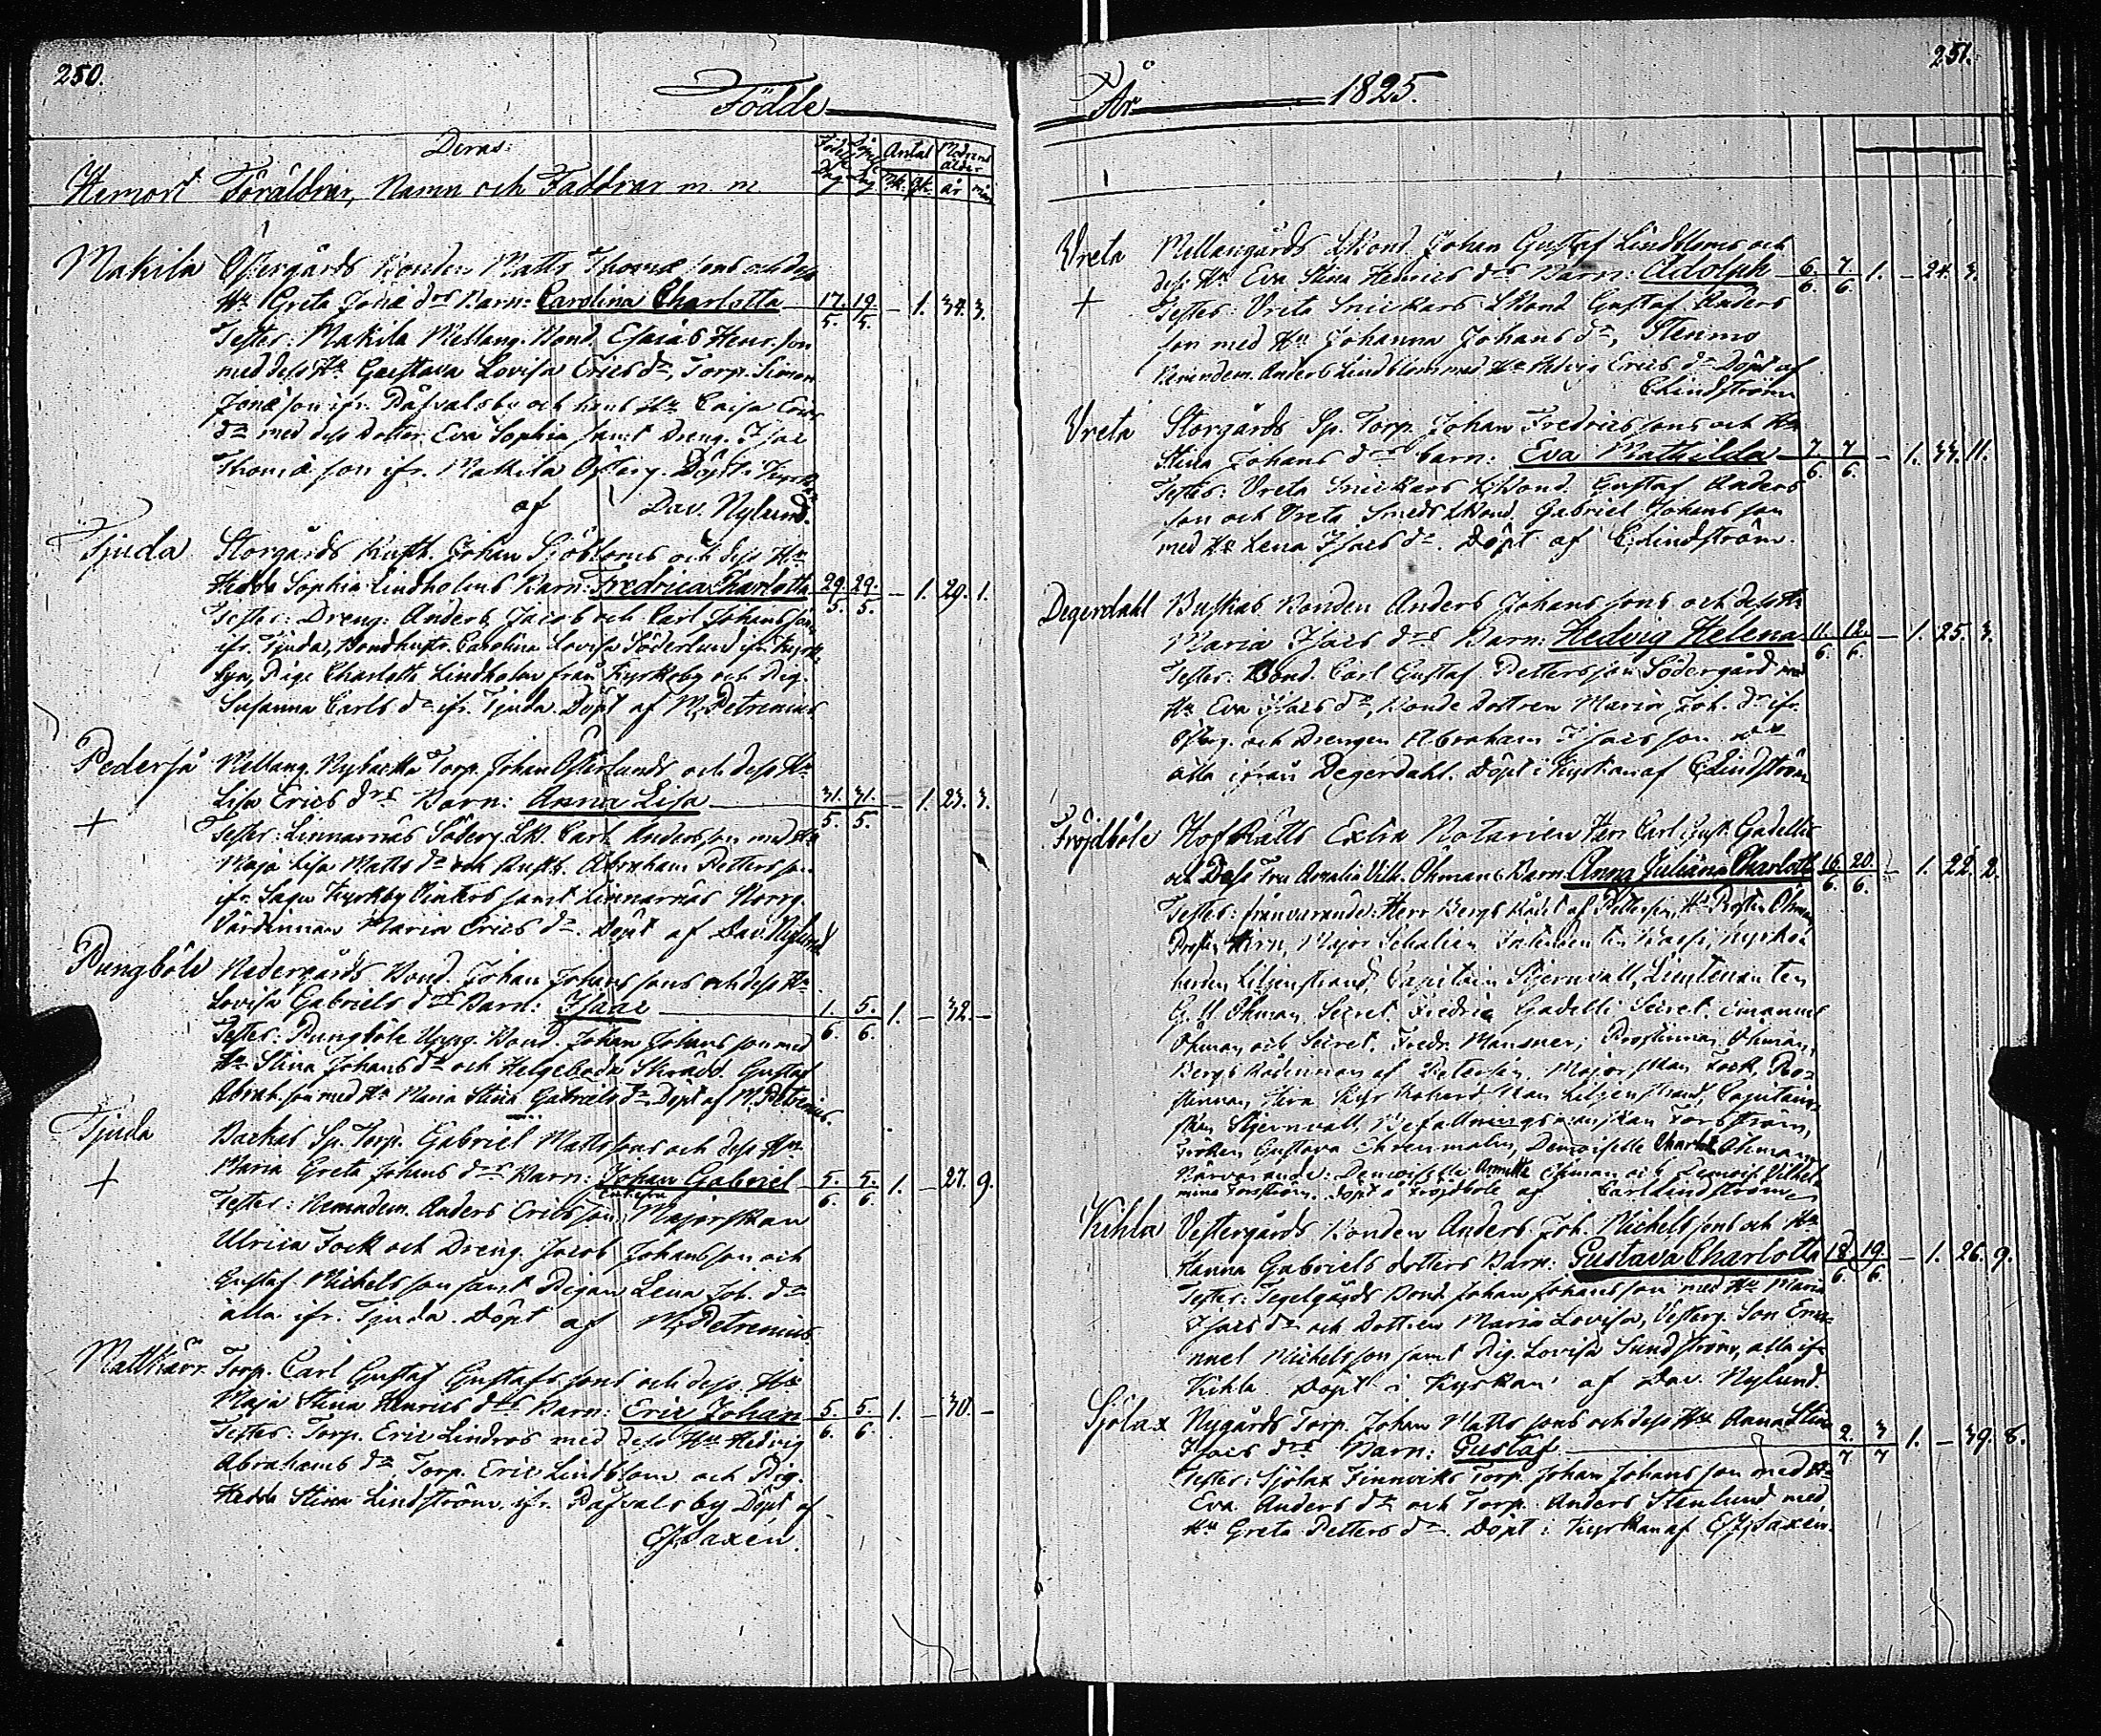 250.
Födde
Deras:
Födelse Dag
Döpelse Dag
Antal
Modrens ålder
Hemort Föräldrar, Namn och Faddrar m. m.
Mk. Qk. år mån
Makila Östergårds Bonden Matts Thomæ sons och dess
Hu Greta Jonæ drs Barn: Carolina Charlotta 17./5. 19./5. – 1. 34. 3.
Testes: Makila Mellang. Bond. Esaias Henr. son
med dess Hu Gustava Lovisa Ericsdr, Torp. Simon
Jonæ son ifr. Påfvalsby och hans Hu Caisa Erics
dr med dess Dotter Eva Sophia samt Dreng. Isac
Thomæ son ifr. Makila Österg. Döpt i Kyrk
af Dav. Nylund.
Tjuda Storgårds Rusth. Johan Sjöbloms och dess Hu
Hedda Sophia Lindholms Barn: Fredrica Charlotta 29./5. 29./5. – 1. 29. 1.
Testes: Dreng. Anders Jacobs och Carl Johans son
ifr. Tjuda, Bondhustr. Carolina Lovisa Söderlund ifr. Kyrk-
byn, Pige Charlotta Lindholm från Kyrkoby och Pig.
Susanna Carls dr ifr. Tjuda. Döpt af M. Petrenius
Pederså Mellang. Nybacka Torp. Johan Österlunds och dess Hu
+ Lisa Erics drs Barn: Anna Lisa 31./5. 31./5. – 1. 23. 3.
Testes: Linnarnäs Söderg. LB. Carl Anders son med Hu
Maja Lisa Matts dr och Rusth. Abraham Petters son
ifr. Sagu Kyrkoby Vinters samt Linnarnäs Norrg.
Värdinnan Maria Erics dr. Döpt af Dav. Nylund.
Pungböle Nedergårds Bond. Johan Johans sons och dess Hu
Lovisa Gabriels drs Barn: Isaac 1./6. 5./6. 1. – 32. –
Testes: Pungböle Uppg. Bond. Johan Johans son med
Hu Stina Johans dr och Helgeboda Skrädd. Gustaf
Abrah. son med Hu Maria Stina Gabriels dr. Döpt af M. Petrenius.
Tjuda Backas Sp. Torp. Gabriel Matts sons och dess Hu
+ Maria Greta Johans drs Barn: Johan Gabriel 5./6. 5./6. 1. – 27. 9.
Testes: Nemndem. Anders Ericsson, Enkefru Majorskan
Ulrica Fock och Dreng. Jacob Johansson och
Gustaf Michels son samt Pigan Lena Joh. dr
alla ifr. Tjuda. Döpt af M. Petrenius
Mattkärr Torp. Carl Gustaf Gustafs sons och dess Hu
Maja Stina Henrics drs Barn: Eric Johan 5./6. 5./6. 1. – 30. –
Testes: Torp. Eric Lindros med dess Hu Hedvig
Abrahams dr, Torp. Eric Lindblom och Pig.
Hedda Stina Lindström, ifr. Påfvalsby Döpt af
EJ. Saxen.
251.
År 1825.
Vreta Mellangårds LBond. Johan Gustaf Lindbloms och
dess Hu Eva Stina Henrics drs Barn: Adolph 6./6. 7./6. 1. – 24. 3.
+ Testes: Vreta Snickars LBond Gustaf Anders
son med Hu Johanna Johans dr, Stenmo
Nemndem. Anders Lindblom med Hu Hedvig Erics dr Döpt af
C Lindström
Vreta Storgårds Sp. Torp. Johan Fredrics sons och Hu
Stina Johans drs barn: Eva Mathilda 7./6. 7./6. – 1. 33. 11.
Testes: Vreta Snickars LBond. Gustaf Anders
son och Vreta Smeds LBond. Gabriel Johans son
med Hu Lena Isacs dr. Döpt af C. Lindström.
Degerdahl Buskas Bonden Anders Johans sons och dess Hu
Maria Isacs drs Barn: Hedvig Helena 11./6. 12./6. – 1. 25. 3.
Testes: Bond. Carl Gustaf Pettersson Södergård med
Hu Eva Isacs dr, Bonde dottren Maria Joh. dr ifr.
Österg. och Drengen Abraham Isacs son
alla ifrån Degerdahl. Döpt i Kyrkan af C Lindström
Fröjdböle Hof Rätts Extra Notarien Herr Carl Gust. Gadellis
och Dess Fru Amalia Vilh. Öhmans Barn Anna Juliana Charlotta 16./6. 20./6. – 1. 22. 2.
Testes: frånvarande: Herr Bergs Rådet af Petersén, Hr Prosten Öhman,
Prosten Hirn, Major Schalien Kyrko-
herden Liljenstrand, Capitain Stjernvall, Lieutenanten
G. U Öhman, Secret. Fredric Gadelli Secret. Emanuel
Öhman och Secret. Fredr. Mansner; Prostinnan Öhman,
Bergs Rådinnan af Petersén, Majorskan Fock, Pro-
stinnan Hirn Kyrkoherdskan Liljenstrand, Capitain-
skan Stjernvall, Befallningsmanskan Forsström,
Fröken Gustava Ehrenmalm, Demoiselle Charlot. Öhman
Närvarande: Demoiselle Annette Öhman och Demois. Vilhel-
mina Forsström. Döpt å Fröjdböle af Carl Lindström
Kihla Vestergårds Bonden Anders Joh. Michels sons och Hu
Hanna Gabriels dotters Barn: Gustava Charlotta 18./6. 19./6. – 1. 26. 9.
Testes: Tegelgårds Bond. Johan Johansson med Hu Maria
Isacs dr och Dottren Maria Lovisa, Vesterg. Son Ema-
nuel Michels son samt Pig. Lovisa Sundström, alla ifr
Kihla Döpt i Kyrkan af Dav. Nylund.
Sjölax Nygårds Torp. Johan Matts sons och dess Hu Anna Stina
Isacs drs Barn: Gustaf 2./7 3/7 1. – 39. 8.
Testes: Sjölax Finnviks Torp. Johan Johans son med Hu
Eva Anders dr och Torp. Anders Stenlund med
Hu Greta Petters dr. Döpt i Kyrkan af EJ. Saxen.